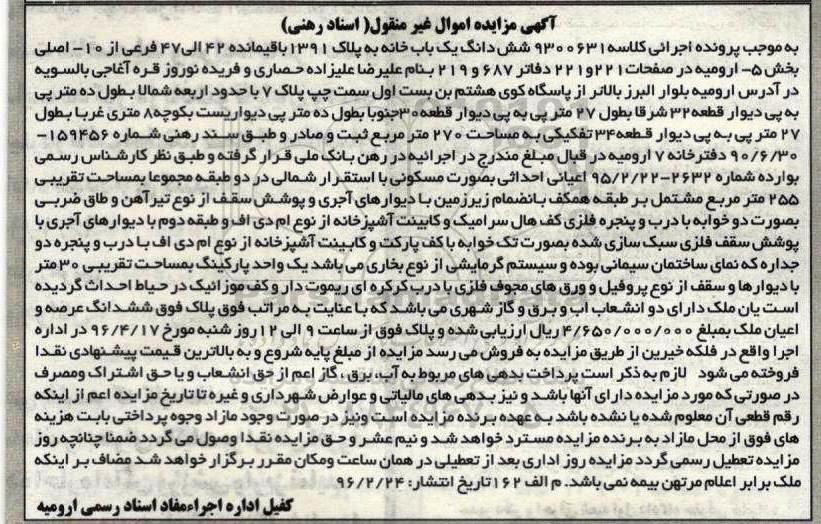 آگهی مزایده اموال غیر منقول( اسناد رهنی)
به موجب پرونده اجرائی کلاسه ۹۳۰۰۶۳۱ شش دانگ یک باب خانه به پلاک ۱۳۹۱ باقیمانده ۴۲ الی ۴۷ فرعی از ۱۰- اصلی
بخش ۵- ارومیه در صفحات ۲۲۱ و ۲۲۱ دفاتر ۶۸۷ و ۲۱۹ بنام علیرضا علیزاده حصاری و فریده نوروز قره آغاجی بالسویه
در آدرس ارومیه بلوار البرز بالاتر از پاسگاه کوی هشتم بن بست اول سمت چپ پلاک ۷ با حدود اربعه شمالا بطول ده متر پی
به پی دیوار قطعه ۳۲ شرقا بطول ۲۷ متر پی به پی دیوار قطعه ۳۰ جنوبا بطول ده متر پی دیواریست بکوچه ۸ متری غربا بطول
۲۷ متر پی به پی دیوار قطعه ۳۴ تفکیکی به مساحت ۲۷۰ متر مربع ثبت و صادر و طبق سند رهنی شماره ۱۵۹۴۵۶-
۹۰/۶/۳۰ دفترخانه ۷ ارومیه در قبال مبلغ مندرج در اجرائیه در رهن بانک ملی قرار گرفته و طبق نظر کارشناس رسمی
بوارده شماره ۲۶۳۲-۹۵/۲/۲۲ اعیانی احداثی بصورت مسکونی با استقرار شمالی در دو طبقه مجموعا بمساحت تقریبی
۲۵۵ متر مربع مشتمل بر طبقه همکف بانضمام زیرزمین با دیوارهای آجری و پوشش سقف از نوع تیرآهن و طاق ضربی
بصورت دو خوابه با درب و پنجره فلزی کف هال سرامیک و کابینت آشپزخانه از نوع ام دی اف و طبقه دوم با دیوارهای آجری با
پوشش سقف فلزی سبک سازی شده بصورت تک خوابه با کف پارکت و کابینت آشپزخانه از نوع ام دی اف با درب و پنجره دو
جداره که نمای ساختمان سیمانی بوده و سیستم گرمایشی از نوع بخاری می باشد یک واحد پارکینگ بمساحت تقریبی ۳۰ متر
با دیوارها و سقف از نوع پروفیل و ورق های مجوف فلزی با درب کرکره ای ریموت دار و کف موزائیک در حیاط احداث گردیده
است یان ملک دارای دو انشعاب اب و برق و گاز شهری می باشد که با عنایت به مراتب فوق پلاک فوق ششدانگ عرصه و
اعیان ملک بمبلغ ۴/۶۵۰/۰۰۰/۰۰۰ ریال ارزیابی شده و پلاک فوق از ساعت ۹ الی ۱۲ روز شنبه مورخ ۹۶/۴/۱۷ در اداره
اجرا واقع در فلکه خیرین از طریق مزایده به فروش می رسد مزایده از مبلغ پایه شروع و به بالاترین قیمت پیشنهادی نقدا
فروخته می شود لازم به ذکر است پرداخت بدهی های مربوط به آب، برق ، گاز اعم از حق انشعاب و یا حق اشتراک ومصرف
در صورتی که مورد مزایده دارای آنها باشد و نیز بدهی های مالیاتی و عوارض شهرداری و غیره تا تاریخ مزایده اعم از اینکه
رقم قطعی آن معلوم شده یا نشده باشد به عهده برنده مزایده است ونیز در صورت وجود مازاد وجوه پرداختی بابت هزینه
های فوق از محل مازاد به برنده مزایده مسترد خواهد شد و نیم عشر و حق مزایده نقدا وصول می گردد ضمنا چنانچه روز
مزایده تعطیل رسمی گردد مزایده روز اداری بعد از تعطیلی در همان ساعت ومکان مقرر برگزار خواهد شد مضاف بر اینکه
ملک برابر اعلام مرتهن بیمه نمی باشد. م الف ۱۶۲ تاریخ انتشار: ۹۶/۲/۲۴
کفیل اداره اجراءمفاد اسناد رسمی ارومیه